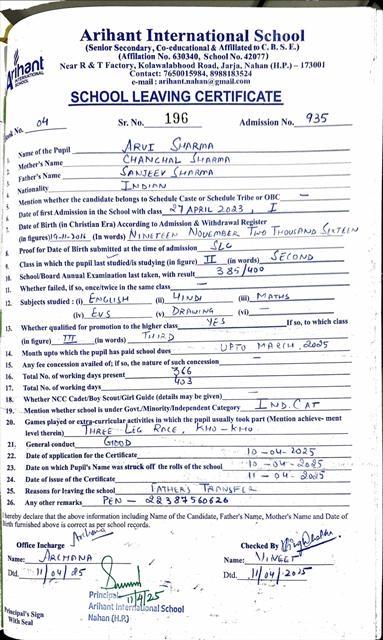 Arihant International School
(Senior Secondary, Co-educational & Affiliated to C. B. S. E.)
(Affilation No. 630340, School No. 42077)
Near R & T Factory, Kolawalabhood Road, Jarja, Nahan (H.P.) – 173001
Contact: 7650015984, 8988183524
e-mail : arihant.nahan@gmail.com
Arihant
INTERNATIONAL SCHOOL
SCHOOL LEAVING CERTIFICATE
Book No. 04 Sr. No. 196 Admission No. 935
1. Name of the Pupil ARVI SHARMA
2. Mother's Name CHANCHAL SHARMA
3. Father's Name SANJEEV SHARMA
4. Nationality INDIAN
5. Mention whether the candidate belongs to Schedule Caste or Schedule Tribe or OBC –
6. Date of first Admission in the School with class 27 APRIL 2023, I
7. Date of Birth (in Christian Era) According to Admission & Withdrawal Register
(in figures) 19-11-2016 (In words) NINETEEN NOVEMBER TWO THOUSAND SIXTEEN
8. Proof for Date of Birth submitted at the time of admission SLC
9. Class in which the pupil last studied/is studying (in figure) II (in words) SECOND
10. School/Board Annual Examination last taken, with result 385/400
11. Whether failed, if so, once/twice in the same class –
12. Subjects studied : (i) ENGLISH (ii) HINDI (iii) MATHS
(iv) EVS (v) DRAWING (vi) –
13. Whether qualified for promotion to the higher class YES If so, to which class
(in figure) III (in words) THIRD
14. Month upto which the pupil has paid school dues UPTO MARCH, 2025
15. Any fee concession availed of; if so, the nature of such concession –
16. Total No. of working days present 366
17. Total No. of working days 403
18. Whether NCC Cadet/Boy Scout/Girl Guide (details may be given) –
19. Mention whether school is under Govt./Minority/Independent Category IND. CAT
20. Games played or extra-curricular activities in which the pupil usually took part (Mention achieve-
ment level therein) THREE LEG RACE, KHO-KHO
21. General conduct GOOD
22. Date of application for the Certificate 10-04-2025
23. Date on which Pupil's Name was struck off the rolls of the school 10-04-2025
24. Date of issue of the Certificate 11-04-2025
25. Reasons for leaving the school FATHER'S TRANSFER
26. Any other remarks PEN – 22387560626
I hereby declare that the above information including Name of the Candidate, Father's Name, Mother's Name and Date of
Birth furnished above is correct as per school records.
Office Incharge Archana Checked By
Name: ARCHANA Name: VINEET
Dtd. 11/04/25 Dtd. 11/04/2025
Principal 11/4/25
Arihant International School
Nahan (H.P.)
Principal's Sign
With Seal